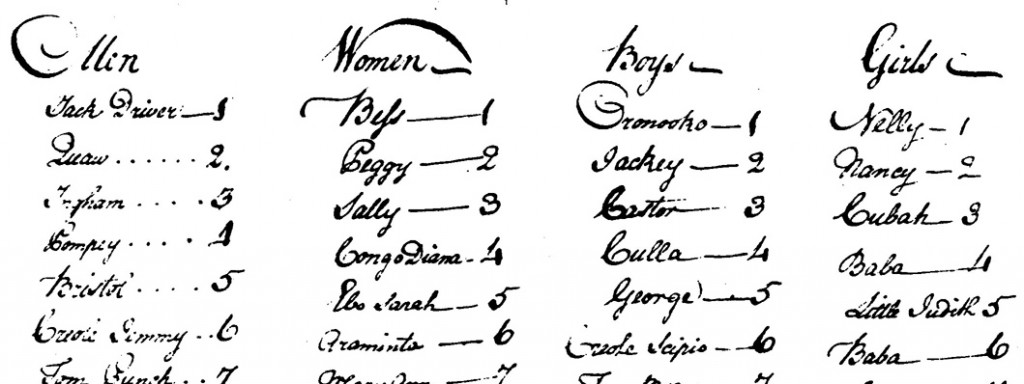 Men Women Boys Girls
Jack Driver — 1 Bess — 1 Oronooko — 1 Nelly — 1
Quaw ...... 2. Peggy — 2 Jackey — 2 Nancy — 2
Ingham ..... 3 Sally — 3 Castor 3 Cubah — 3
Pompey .... 4 Congo Diana - 4 Culla — 4 Baba — 4
Bristol .... 5 Ebo Sarah — 5 George — 5 Little Judith 5
Creole Jemmy .. 6 Araminta — 6 Creole Scipio — 6 Baba — 6
Tom Punch .. 7 7 7